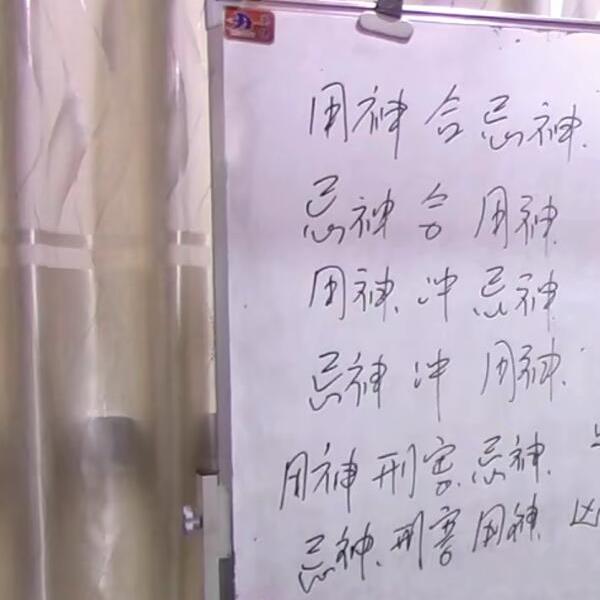 用神合忌神.
忌神合用神
用神.冲忌神
忌神冲用神.
用神刑害.忌神.
忌神.刑害用神. 凶